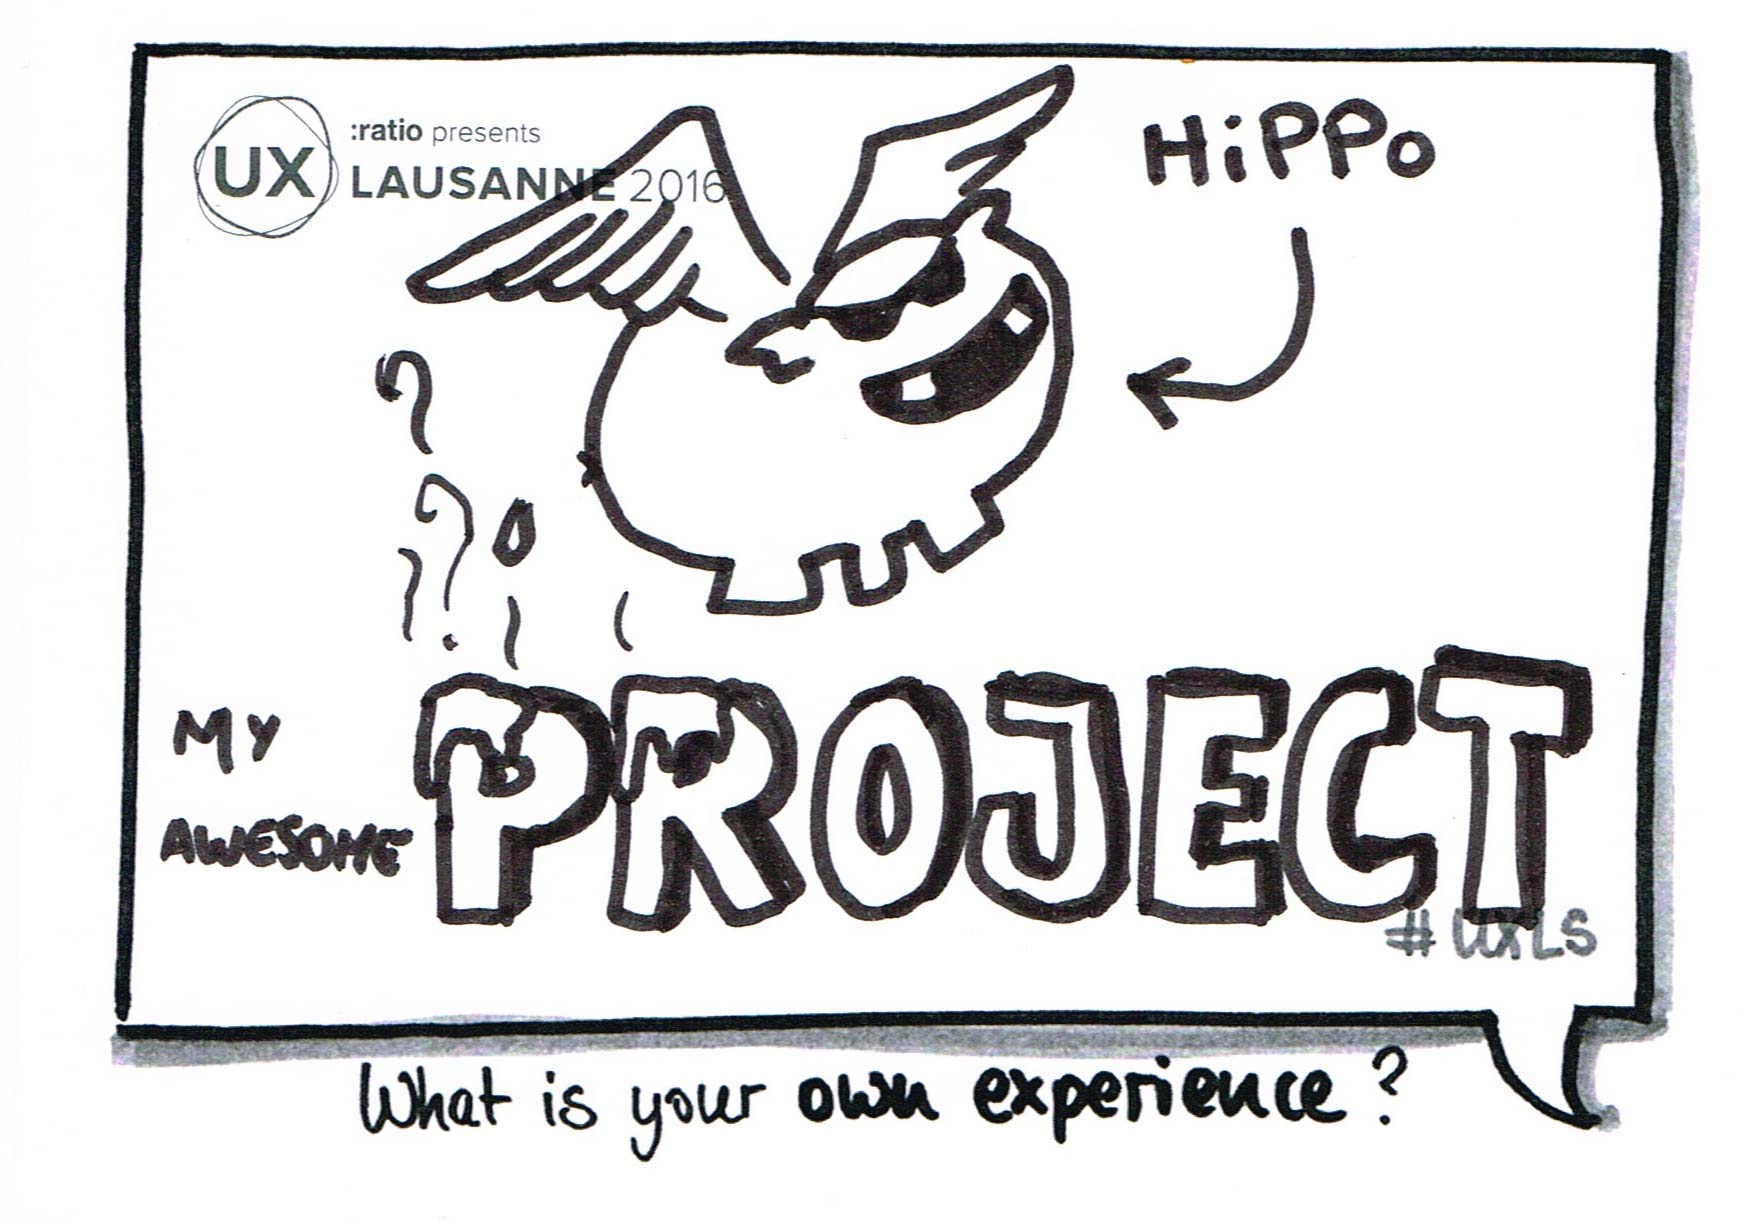 :ratio presents
UX LAUSANNE 2016
HiPPo
MY
AWESOME
PROJECT
# UXLS
What is your own experience?